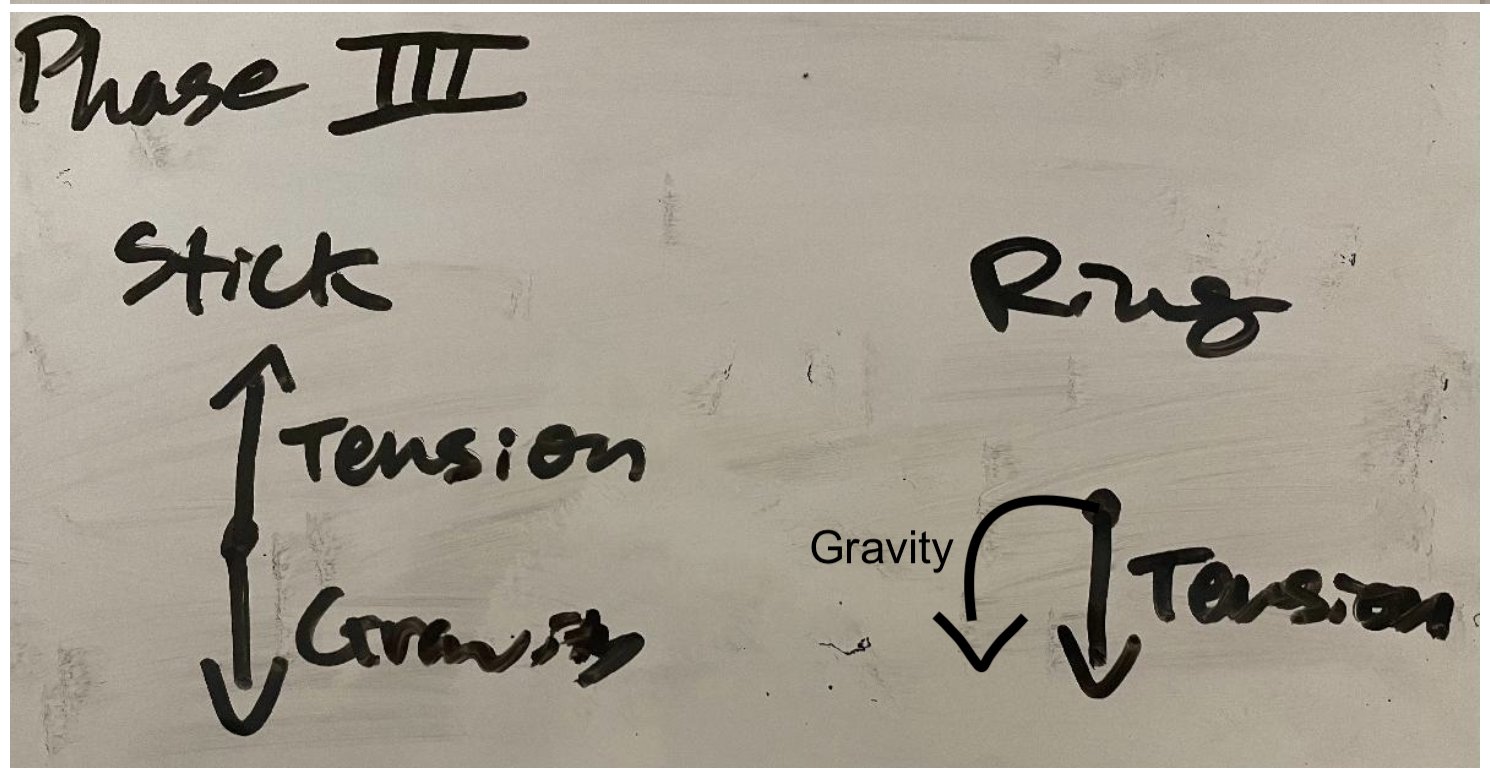 Phase III
Stick
Ring
Tension
Gravity
Gravity
Tension